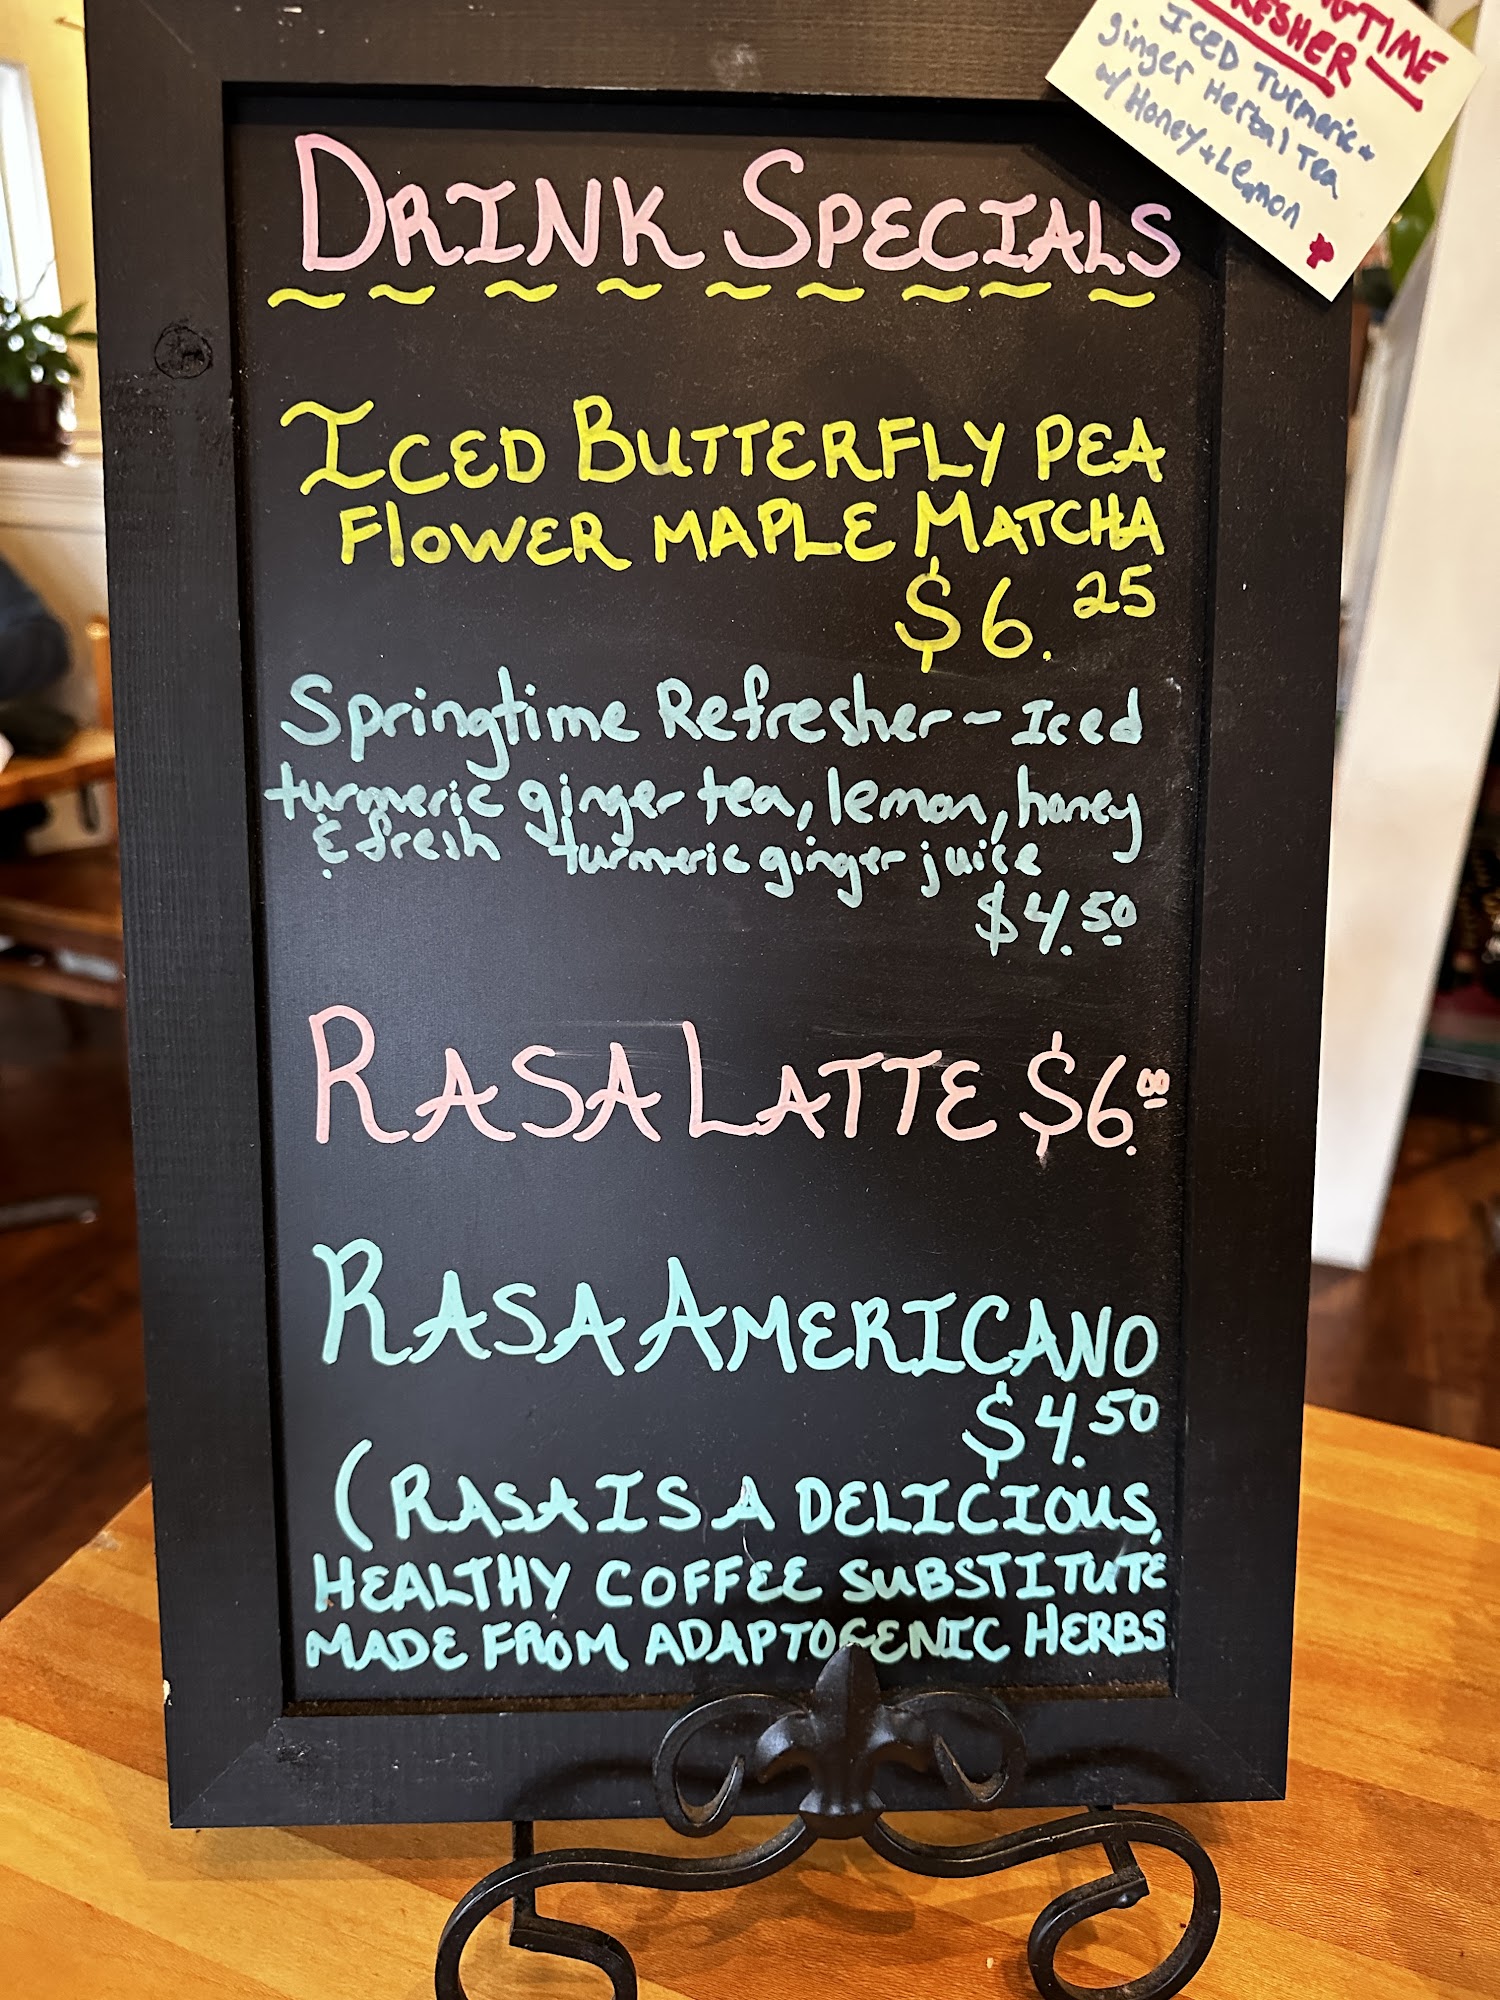 DRINK SPECIALS
ICED BUTTERFLY PEA
FLOWER MAPLE MATCHA
$6.25
Springtime Refresher - Iced
turmeric ginger tea, lemon, honey
& fresh turmeric ginger juice
$4.50
RASA LATTE $6.00
RASA AMERICANO
$4.50
(RASA IS A DELICIOUS,
HEALTHY COFFEE SUBSTITUTE
MADE FROM ADAPTOGENIC HERBS
ICED Turmeric +
ginger Herbal Tea
w/ Honey + Lemon